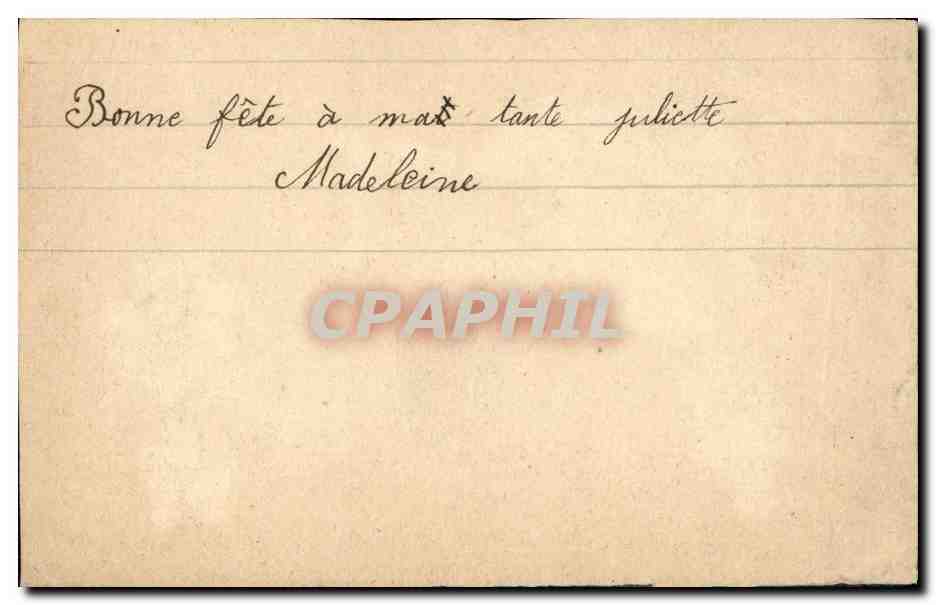 Bonne fête à ma tante juliette
Madeleine
CPAPHIL